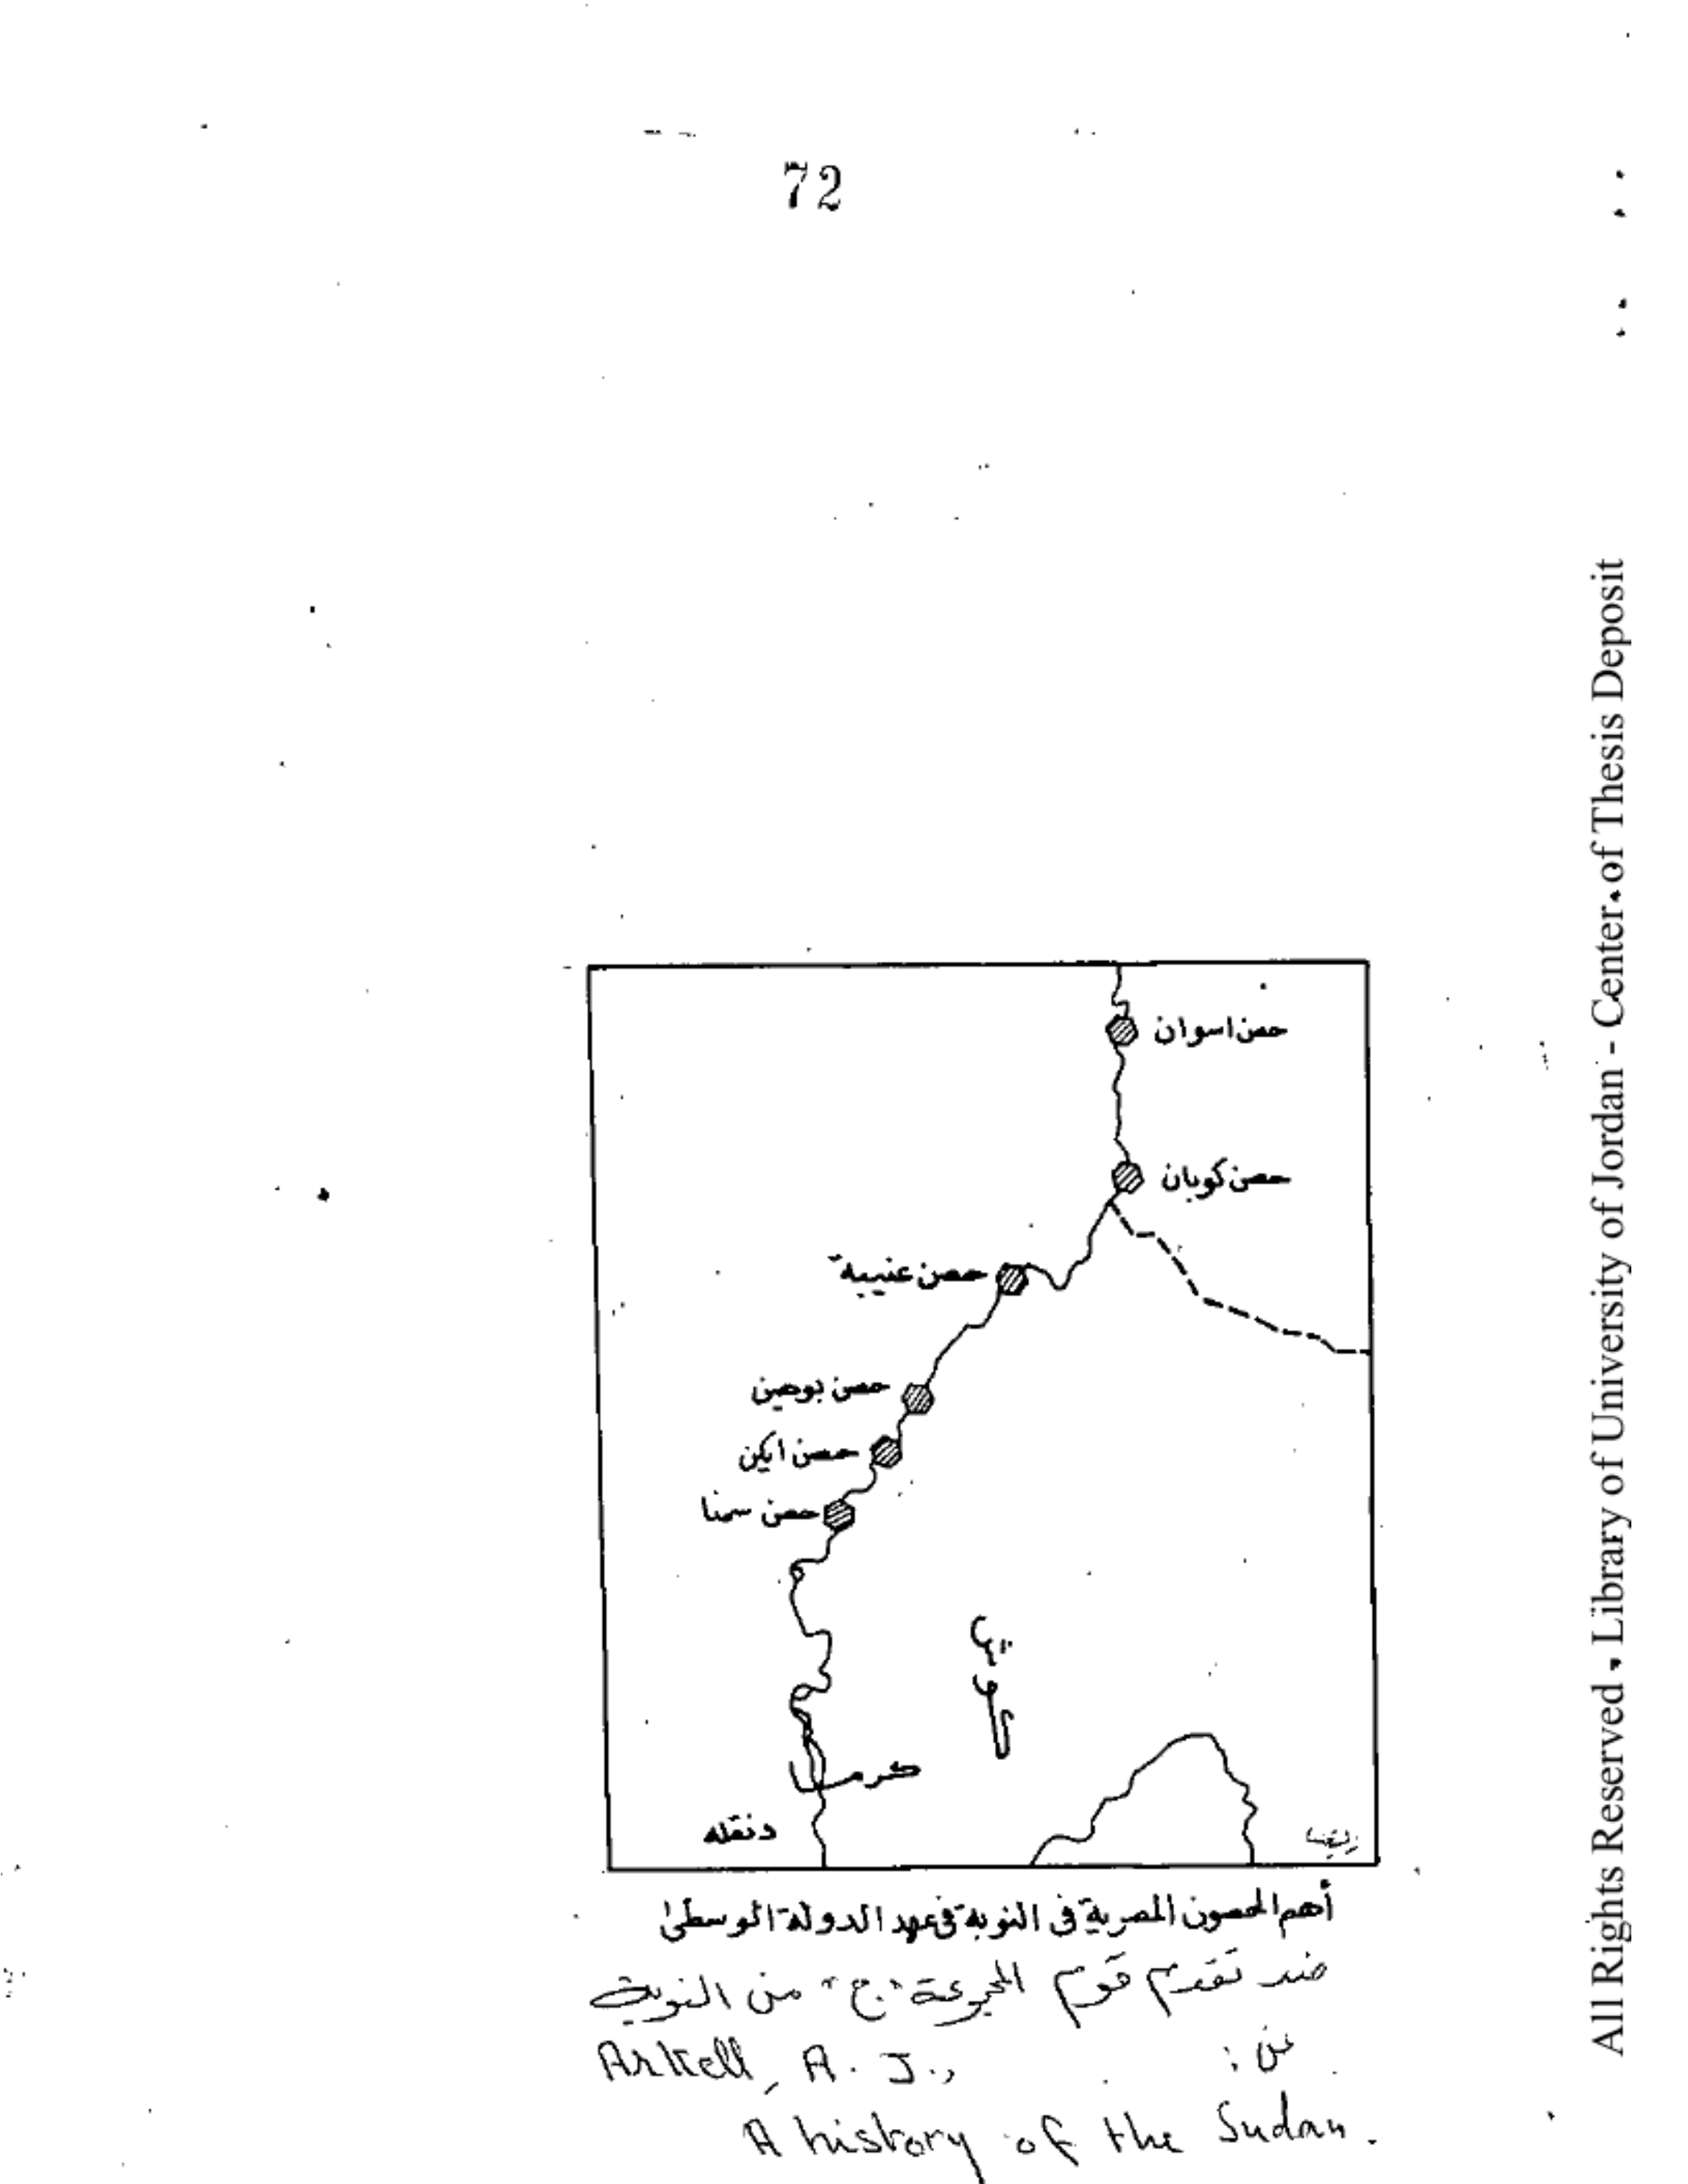 72
حصن اسوان
حصن كوبان
حصن عنيبة
حصن بوهين
حصن ايكن
حصن سمنا
كرمـا
دنقله
أهم الحصون المصرية في النوبة في عهد الدولة الوسطى
ضد تقدم قوم المجموعة "ج" من النوبة
عن :
Arkell, A. J.,
A history of the Sudan.
All Rights Reserved - Library of University of Jordan - Center of Thesis Deposit